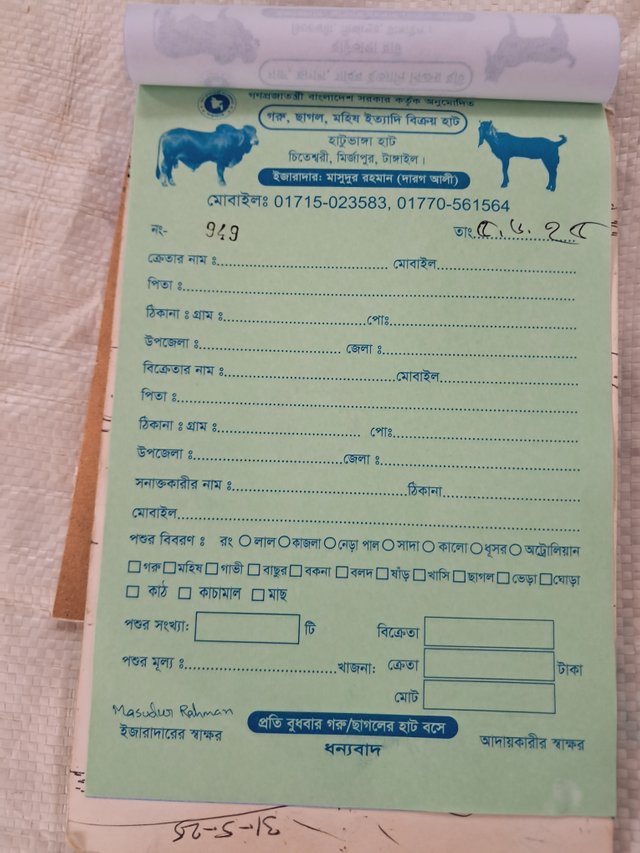 গণপ্রজাতন্ত্রী বাংলাদেশ সরকার কর্তৃক অনুমোদিত
গরু, ছাগল, মহিষ ইত্যাদি বিক্রয় হাট
হাটুভাঙ্গা হাট
চিতেশ্বরী, মির্জাপুর, টাঙ্গাইল।
ইজারাদার: মাসুদুর রহমান (দারগ আলী)
মোবাইলঃ 01715-023583, 01770-561564
নং- 949 তাং ৫.৬.২৫
ক্রেতার নাম ঃ মোবাইল
পিতা ঃ
ঠিকানা ঃ গ্রাম ঃ পোঃ
উপজেলা ঃ জেলা ঃ
বিক্রেতার নাম ঃ মোবাইল
পিতা ঃ
ঠিকানা ঃ গ্রাম ঃ পোঃ
উপজেলা ঃ জেলা ঃ
সনাক্তকারীর নাম ঃ ঠিকানা
মোবাইল
পশুর বিবরণ ঃ রং লাল কাজলা নেড়া পাল সাদা কালো ধূসর অস্ট্রোলিয়ান
গরু মহিষ গাভী বাছুর বকনা বলদ ষাঁড় খাসি ছাগল ভেড়া ঘোড়া
কাঠ কাচামাল মাছ
পশুর সংখ্যা: টি বিক্রেতা
পশুর মূল্য ঃ খাজনা: ক্রেতা টাকা
মোট
Masudur Rahman
ইজারাদারের স্বাক্ষর
প্রতি বুধবার গরু/ছাগলের হাট বসে
ধন্যবাদ
আদায়কারীর স্বাক্ষর
31-5-25